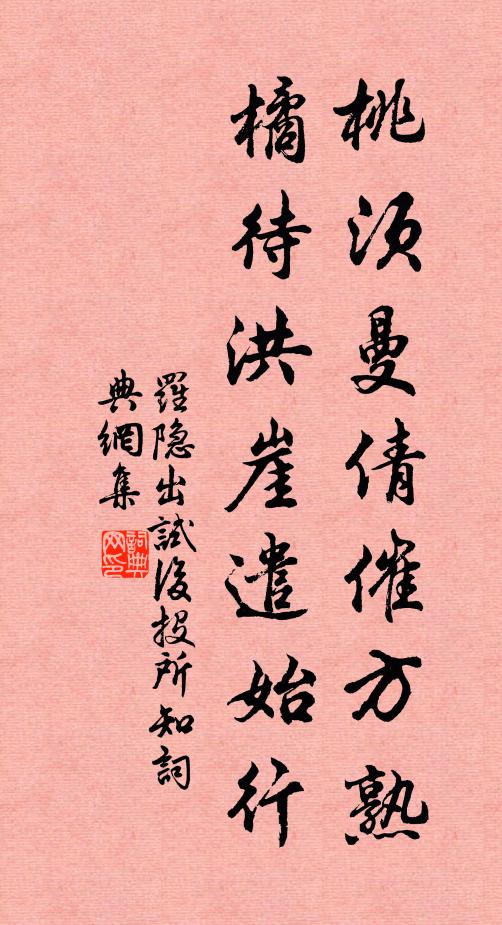 桃须曼倩催方熟
橘待洪崖遣始行
羅隐出試後投所知詞
典網集
詞典网印